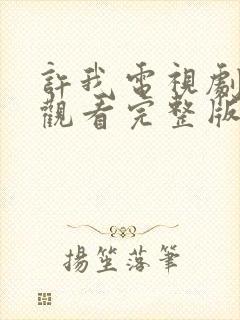 許我電視劇
觀看完整版
揚笙落筆